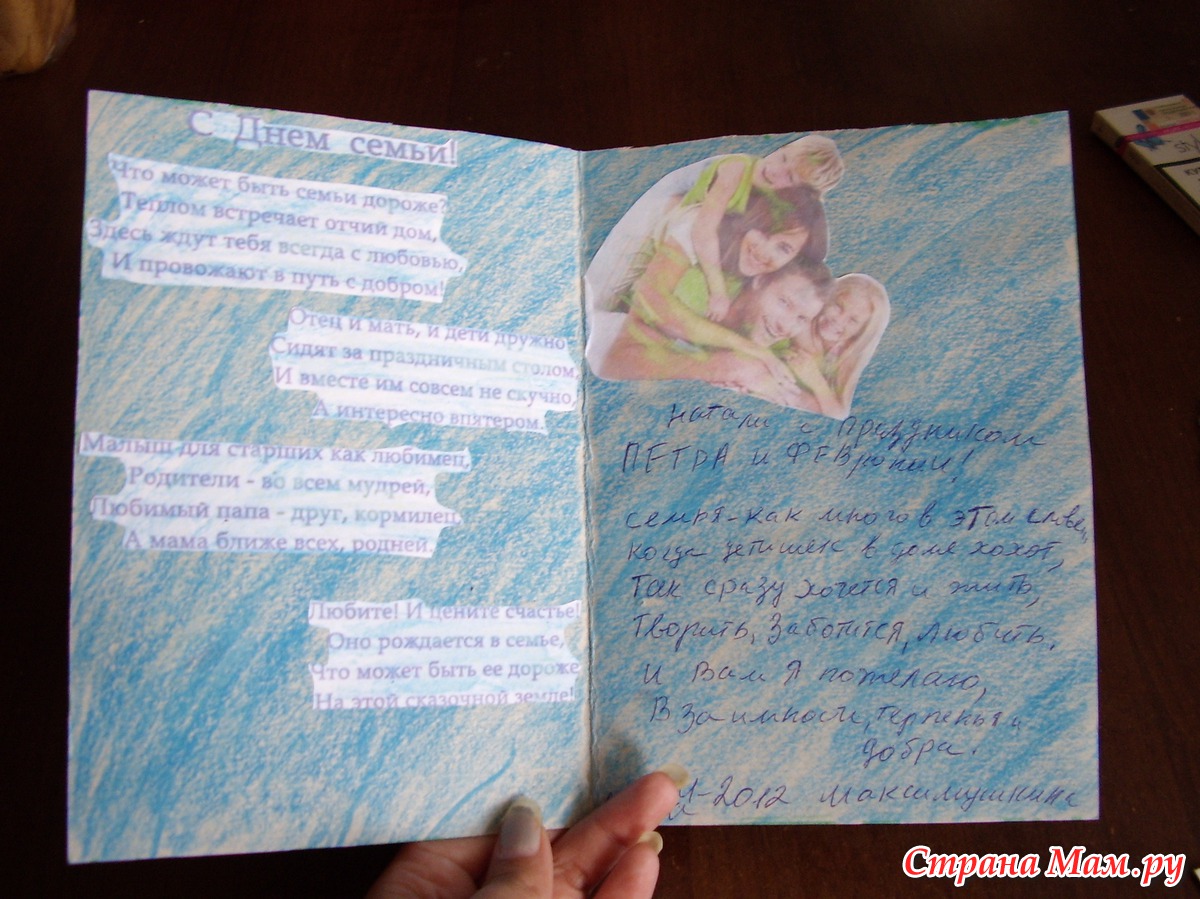 С Днем семьи!
Что может быть семьи дороже?
Теплом встречает отчий дом,
Здесь ждут тебя всегда с любовью,
И провожают в путь с добром!
Отец и мать, и дети дружно
Сидят за праздничным столом,
И вместе им совсем не скучно,
А интересно впятером.
Малыш для старших как любимец,
Родители - во всем мудрей,
Любимый папа - друг, кормилец,
А мама ближе всех, родней.
Любите! И цените счастье!
Оно рождается в семье,
Что может быть ее дороже
На этой сказочной земле!
Натали с Праздником
ПЕТРА и ФЕВронии!
семья-как много в этом слове,
когда детишек в доме хохот,
Так сразу хочется и жить,
Творить, Заботится, Любить.
И Вам Я пожелаю,
Взаимности, терпенья и
добра.
-2012 Максимушкина
styl
Страна Мам.ру